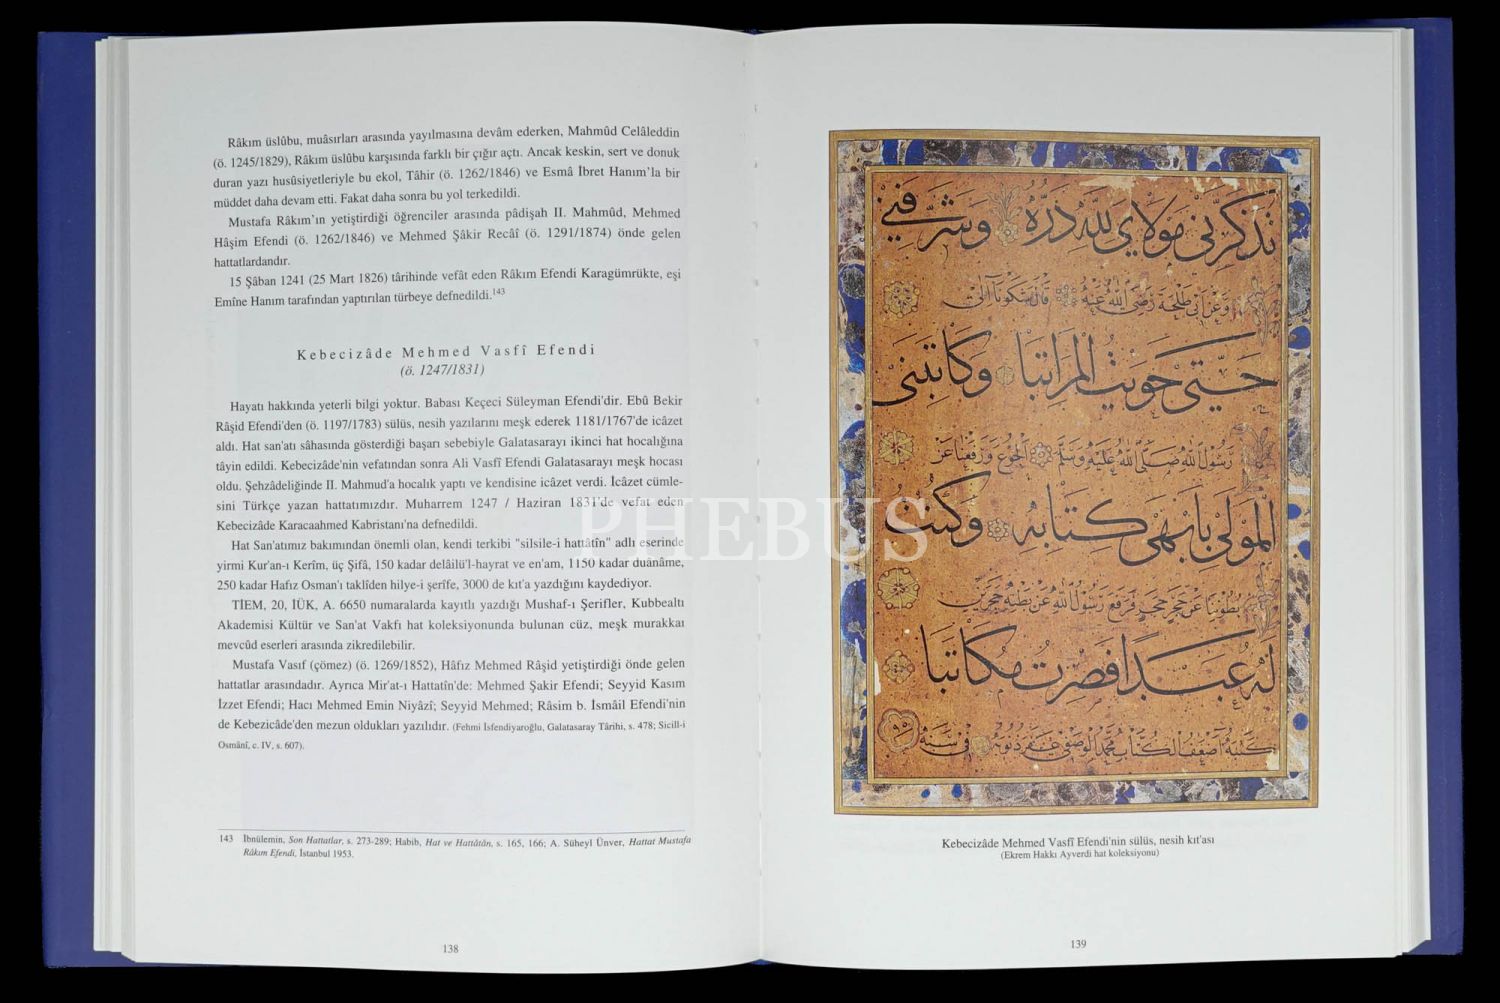 Râkım üslûbu, muâsırları arasında yayılmasına devâm ederken, Mahmûd Celâleddin
(ö. 1245/1829), Râkım üslûbu karşısında farklı bir çığır açtı. Ancak keskin, sert ve donuk
duran yazı husûsiyetleriyle bu ekol, Tâhir (ö. 1262/1846) ve Esmâ İbret Hanım'la bir
müddet daha devam etti. Fakat daha sonra bu yol terkedildi.
Mustafa Râkım'ın yetiştirdiği öğrenciler arasında pâdişah II. Mahmûd, Mehmed
Hâşim Efendi (ö. 1262/1846) ve Mehmed Şâkir Recâî (ö. 1291/1874) önde gelen
hattatlardandır.
15 Şâban 1241 (25 Mart 1826) târihinde vefât eden Râkım Efendi Karagümrükte, eşi
Emîne Hanım tarafından yaptırılan türbeye defnedildi.143
Kebecizâde Mehmed Vasfî Efendi
(ö. 1247/1831)
Hayatı hakkında yeterli bilgi yoktur. Babası Keçeci Süleyman Efendi'dir. Ebû Bekir
Râşid Efendi'den (ö. 1197/1783) sülüs, nesih yazılarını meşk ederek 1181/1767'de icâzet
aldı. Hat san'atı sâhasında gösterdiği başarı sebebiyle Galatasarayı ikinci hat hocalığına
tâyin edildi. Kebecizâde'nin vefatından sonra Ali Vasfî Efendi Galatasarayı meşk hocası
oldu. Şehzâdeliğinde II. Mahmud'a hocalık yaptı ve kendisine icâzet verdi. İcâzet cümle-
sini Türkçe yazan hattatımızdır. Muharrem 1247 / Haziran 1831'de vefat eden
Kebecizâde Karacaahmed Kabristanı'na defnedildi.
Hat San'atımız bakımından önemli olan, kendi terkibi "silsile-i hattâtîn" adlı eserinde
yirmi Kur'an-ı Kerîm, üç Şifâ, 150 kadar delâilü'l-hayrat ve en'am, 1150 kadar duânâme,
250 kadar Hafız Osman'ı taklîden hilye-i şerîfe, 3000 de kıt'a yazdığını kaydediyor.
TİEM, 20, İÜK, A. 6650 numaralarda kayıtlı yazdığı Mushaf-ı Şerifler, Kubbealtı
Akademisi Kültür ve San'at Vakfı hat koleksiyonunda bulunan cüz, meşk murakkaı
mevcûd eserleri arasında zikredilebilir.
Mustafa Vasıf (çömez) (ö. 1269/1852), Hâfız Mehmed Râşid yetiştirdiği önde gelen
hattatlar arasındadır. Ayrıca Mir'at-ı Hattatîn'de: Mehmed Şakir Efendi; Seyyid Kasım
İzzet Efendi; Hacı Mehmed Emin Niyâzî; Seyyid Mehmed; Râsim b. Ismâil Efendi'nin
de Kebezicâde'den mezun oldukları yazılıdır. (Fehmi İsfendiyaroğlu, Galatasaray Târihi, s. 478; Sicill-i
Osmânî, c. IV, s. 607).
143 İbnülemin, Son Hattatlar, s. 273-289; Habib, Hat ve Hattâtân, s. 165, 166; A. Süheyl Ünver, Hattat Mustafa
Râkım Efendi, İstanbul 1953.
138
PHEBUS
تذكرني مولاي لله دره وشرفني
وعن ابي طلحة رضي الله عنه قال شكونا الى
حتى حويت المراتبا وكاتبني
رسول الله صلى الله عليه وسلم الجوع ورفعنا عن
المولى بابهى كتابه وكنت
بطوننا عن حجر حجر فرفع رسول الله عن بطنه حجرين
له عبدا فصرت مكاتبا
كتبه اضعف الكتاب محمد الوصفي غفر ذنوبه في سنة
Kebecizâde Mehmed Vasfî Efendi'nin sülüs, nesih kıt'ası
(Ekrem Hakkı Ayverdi hat koleksiyonu)
139